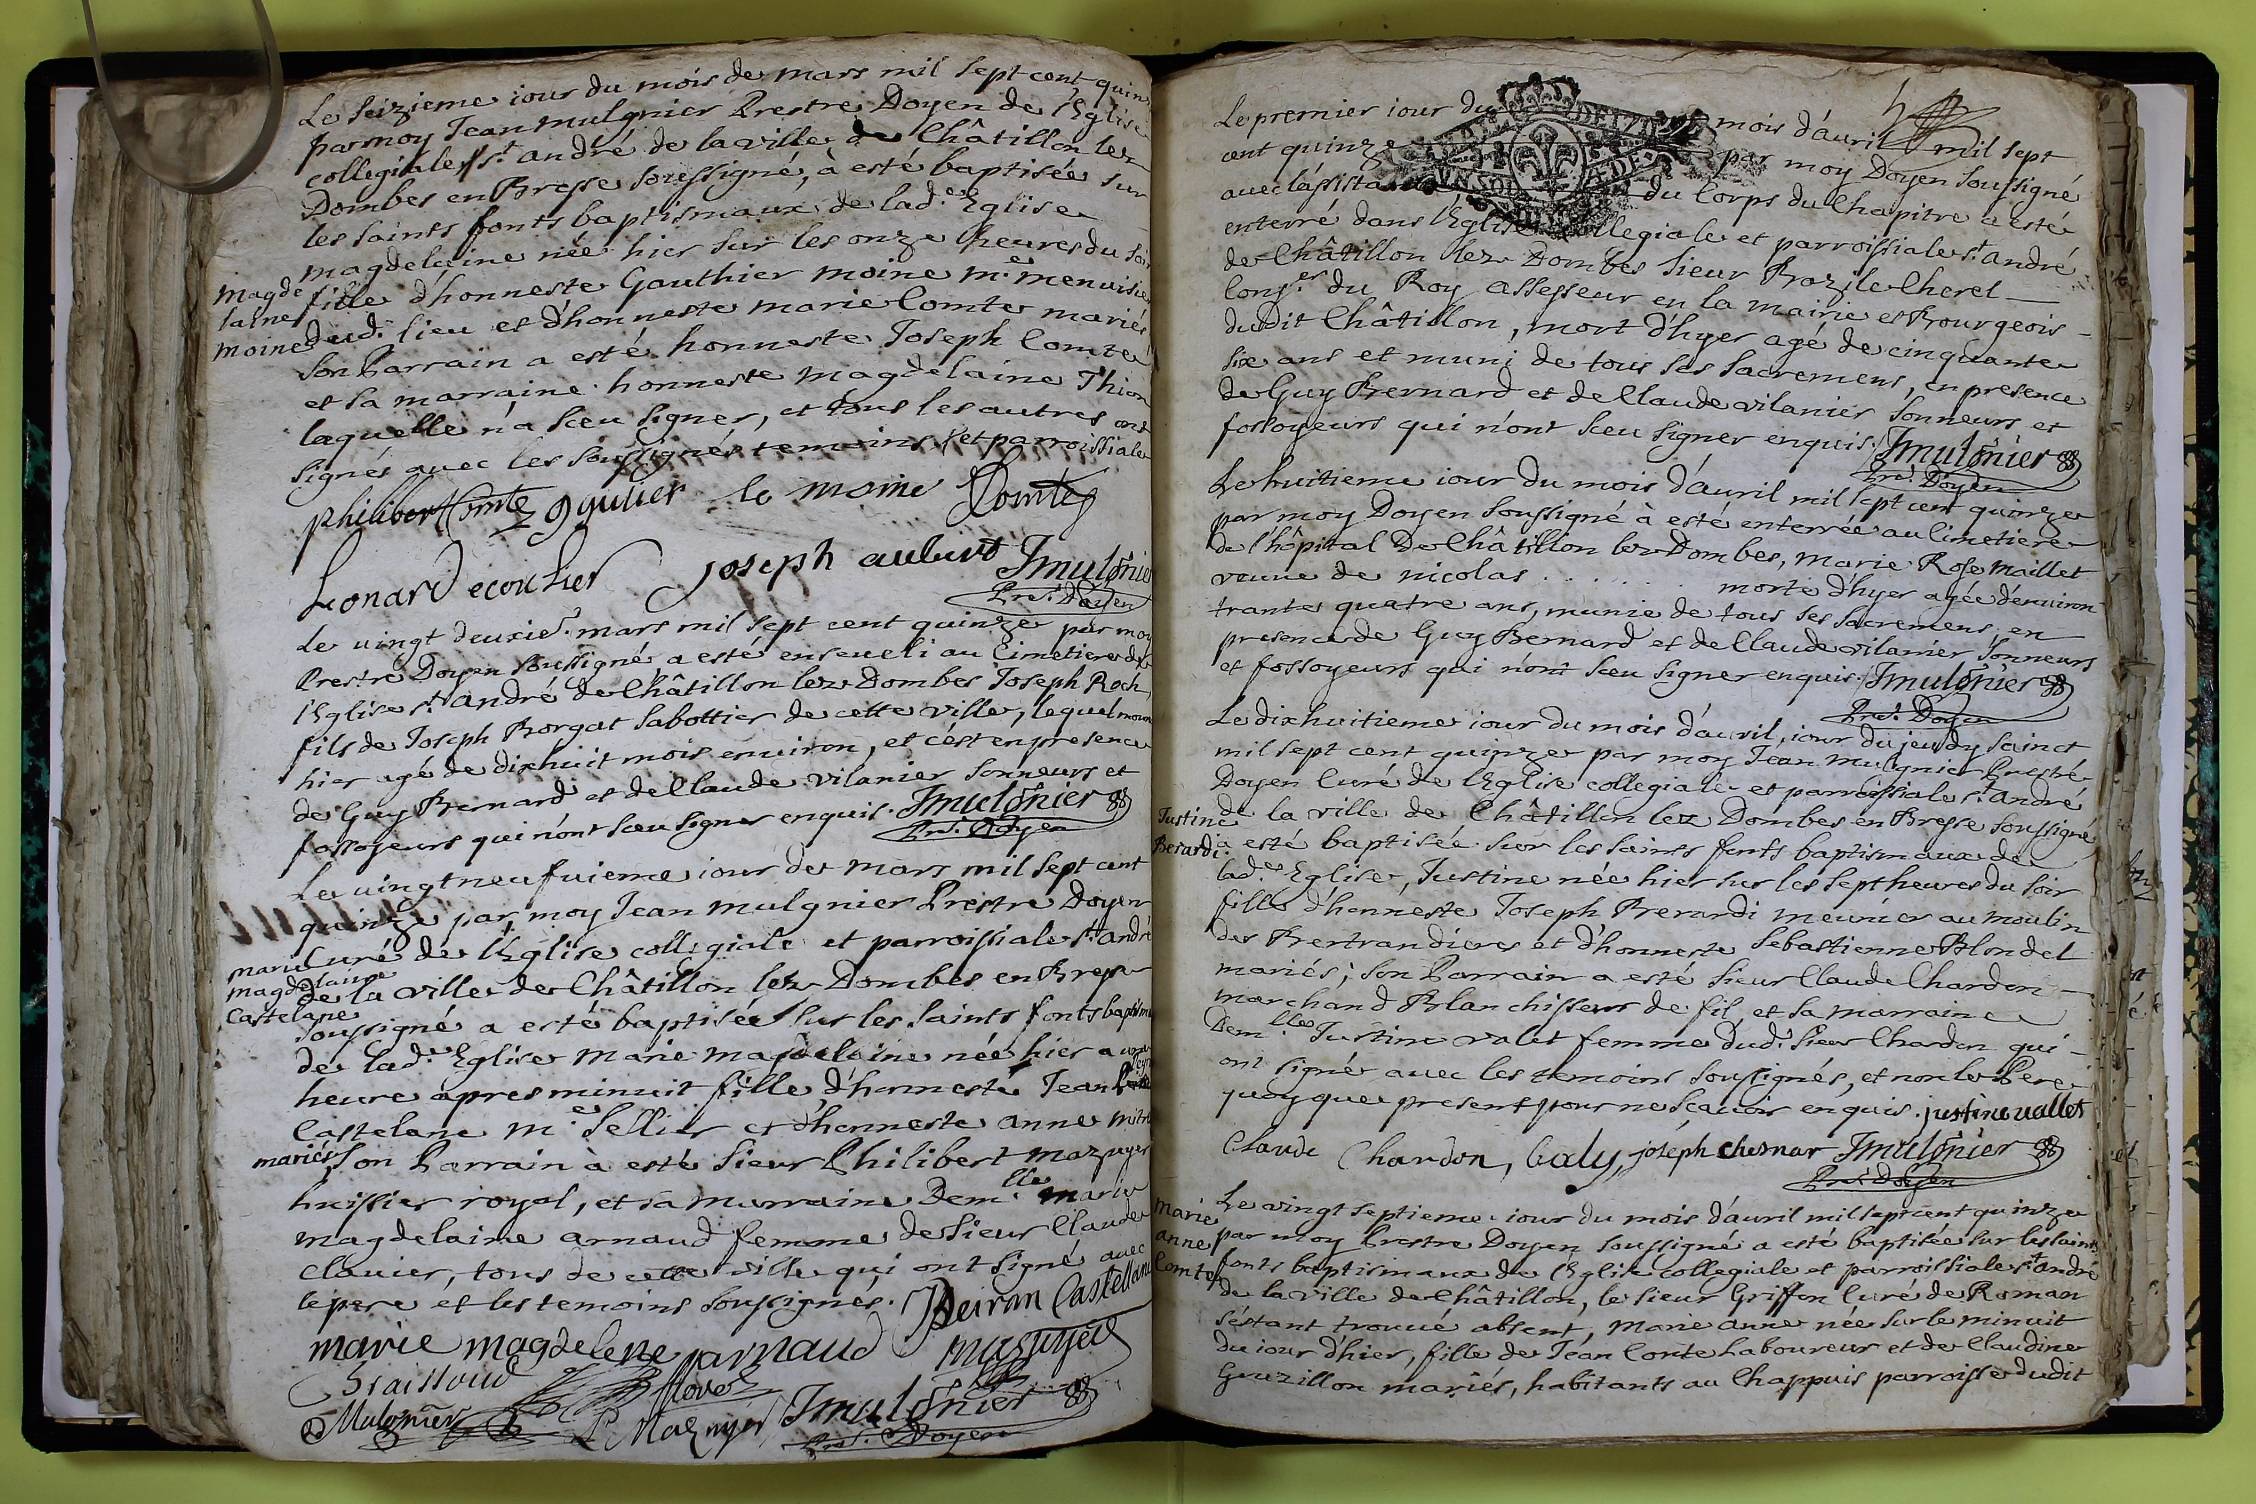 Le seizieme iour du mois de mars mil sept cent quin
par moy Jean mulgnier Prestre Doyen de l'Eglise
collegiale st. andré de la ville de Châtillon lez
Dombes en Bresse soussigné, à esté baptisée sur
les saints fonts baptismaux de lad.e Eglise
magdelaine née hier sur les onze heures du soir
Magde
laine
moine
fille d'honneste Gauthier moine m.e menuisier
dud. lieu et d'honneste marie Comte mariés
son Parrain a esté honneste Joseph Comte
et sa marraine honneste magdelaine Thion
laquelle n'a sceu signer, et tous les autres ont
signés avec les soussignés temoins et parroissiale
philibert Comte g gullier le moine Comte
Leonard ecochier Joseph aubert Jmulgnier
Pre. Doyen
Le vingt deuxie. mars mil sept cent quinze par moy
Prestre Doyen soussigné a esté enseueli au Cimetiere de
l'Eglise st andré de Châtillon lez Dombes Joseph Roch
fils de Joseph Borgat sabottier de cette ville, lequel mour
hier agé de dixhuit mois enuiron, et c'est en presence
de Guy Bernard et de Claude vilanier sonneurs et
fossoyeurs qui n'ont sceu signer enquis. Jmulgnier
Pre. Doyen
Le vingtneufuieme iour de mars mil sept cent
quinze par moy Jean mulgnier Prestre Doyen
marie
magdelaine
Castelane
Curé de l'Eglise collegiale et parroissiale st andré
de la ville de Châtillon lez Dombes en Bresse
soussigné a esté baptisée sur les saints fonts baptisma
de lad.e Eglise marie magdelaine née hier a une
heure apres minuit fille d'honneste Jean
Castelane m.e sellier et d'honneste anne
mariés, son Parrain à esté sieur Philibert mazuyer
huissier royal, et sa marraine Dem.lle marie
magdelaine arnaud femme de sieur Claude
Clauier, tous de cette ville qui ont signé avec
le pere et les temoins soussignes. Peiran Castellane
marie magdelene arnaud mazuyer
Braissoud
Mulgnier P Mazuyer Jmulgnier
Pre. Doyen
Le premier iour du mois d'auril mil sept
cent quinze par moy Doyen soussigné
avec l'assistance du Corps du Chapitre a esté
enterré dans l'Eglise Collegiale et parroissiale st. andré
de Châtillon lez Dombes sieur Bazile Cherel
Cons.er du Roy assesseur en la mairie et Bourgeois
dudit Châtillon, mort d'hyer agé de cinquante
six ans et muni de tous ses sacremens, en presence
de Guy Bernard et de Claude vilanier sonneurs et
fossoyeurs qui n'ont sceu signer enquis. Jmulgnier
Pre. Doyen
Le huitieme iour du mois d'auril mil sept cent quinze
par moy Doyen soussigné à esté enterrée au Cimetiere
de l'hôpital de Châtillon lez Dombes, Marie Rose maillet
veuue de nicolas . . . . . . morte d'hyer agée d'enuiron
trante quatre ans, munie de tous ses sacremens, en
presence de Guy Bernard et de Claude vilanier sonneurs
et fossoyeurs qui n'ont sceu signer enquis. Jmulgnier
Pre. Doyen
Le dixhuitieme iour du mois d'auril, iour du jeudy sainct
mil sept cent quinze par moy Jean mulgnier Prestre
Doyen Curé de l'Eglise collegiale et parroissiale st. andré
Justine
Berardi
de la ville de Châtillon lez Dombes en Bresse soussigné
a esté baptisée sur les saints fonts baptismaux de
lad.e Eglise, Justine née hier sur les sept heures du soir
fille d'honneste Joseph Berardi meunier au moulin
des Bertrandieres et d'honneste Sebastienne Blondel
mariés; son Parrain a esté sieur Claude Chardon
marchand Blanchisseur de fil, et sa marraine
Dem.lle Justine valet femme dud. sieur Chardon qui
ont signé avec les temoins soussignés, et non le Pere
quoyque present pour ne sçavoir enquis. justine vallet
Claude Chardon, Galy, joseph chesnar Jmulgnier
Pre. Doyen
Marie
anne
Comte
Le vingt septieme iour du mois d'auril mil sept cent quinze
par moy Prestre Doyen soussigné a esté baptisée sur les saints
fonts baptismaux de l'Eglise collegiale et parroissiale st. andré
de la ville de Châtillon, le sieur Griffon Curé de Roman
s'estant trouué absent, Marie anne née sur le minuit
du iour d'hier, fille de Jean Conte laboureur et de Claudine
Gouzillon mariés, habitants au Chappuis parroisse dudit